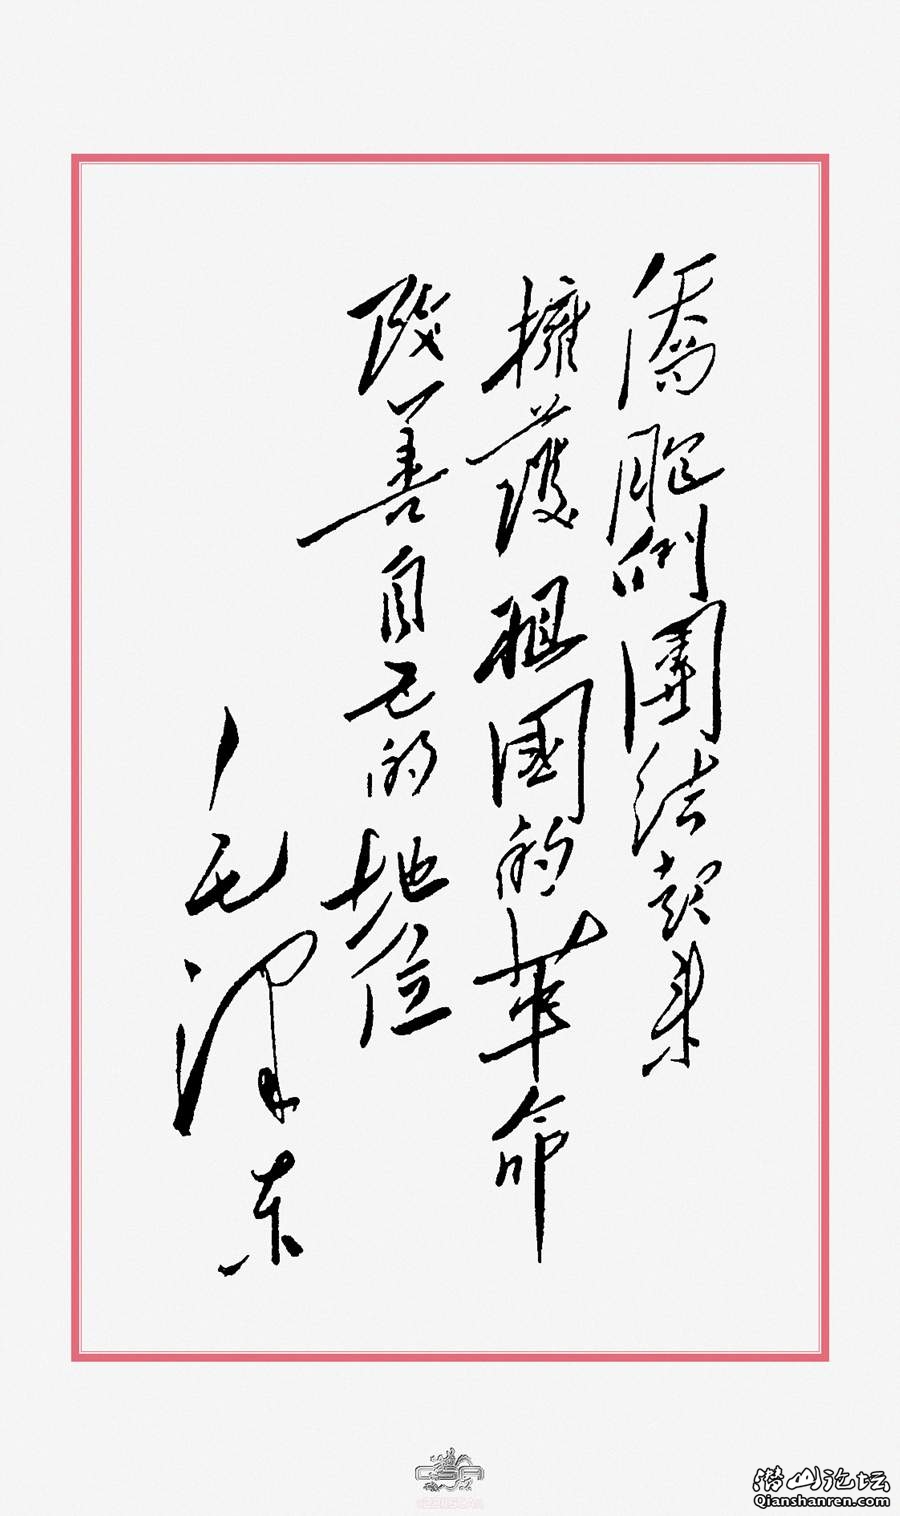 僑胞们團结起来
擁護祖國的革命
改善自己的地位
毛泽东
CSA
潜山论坛
Qianshanren.com